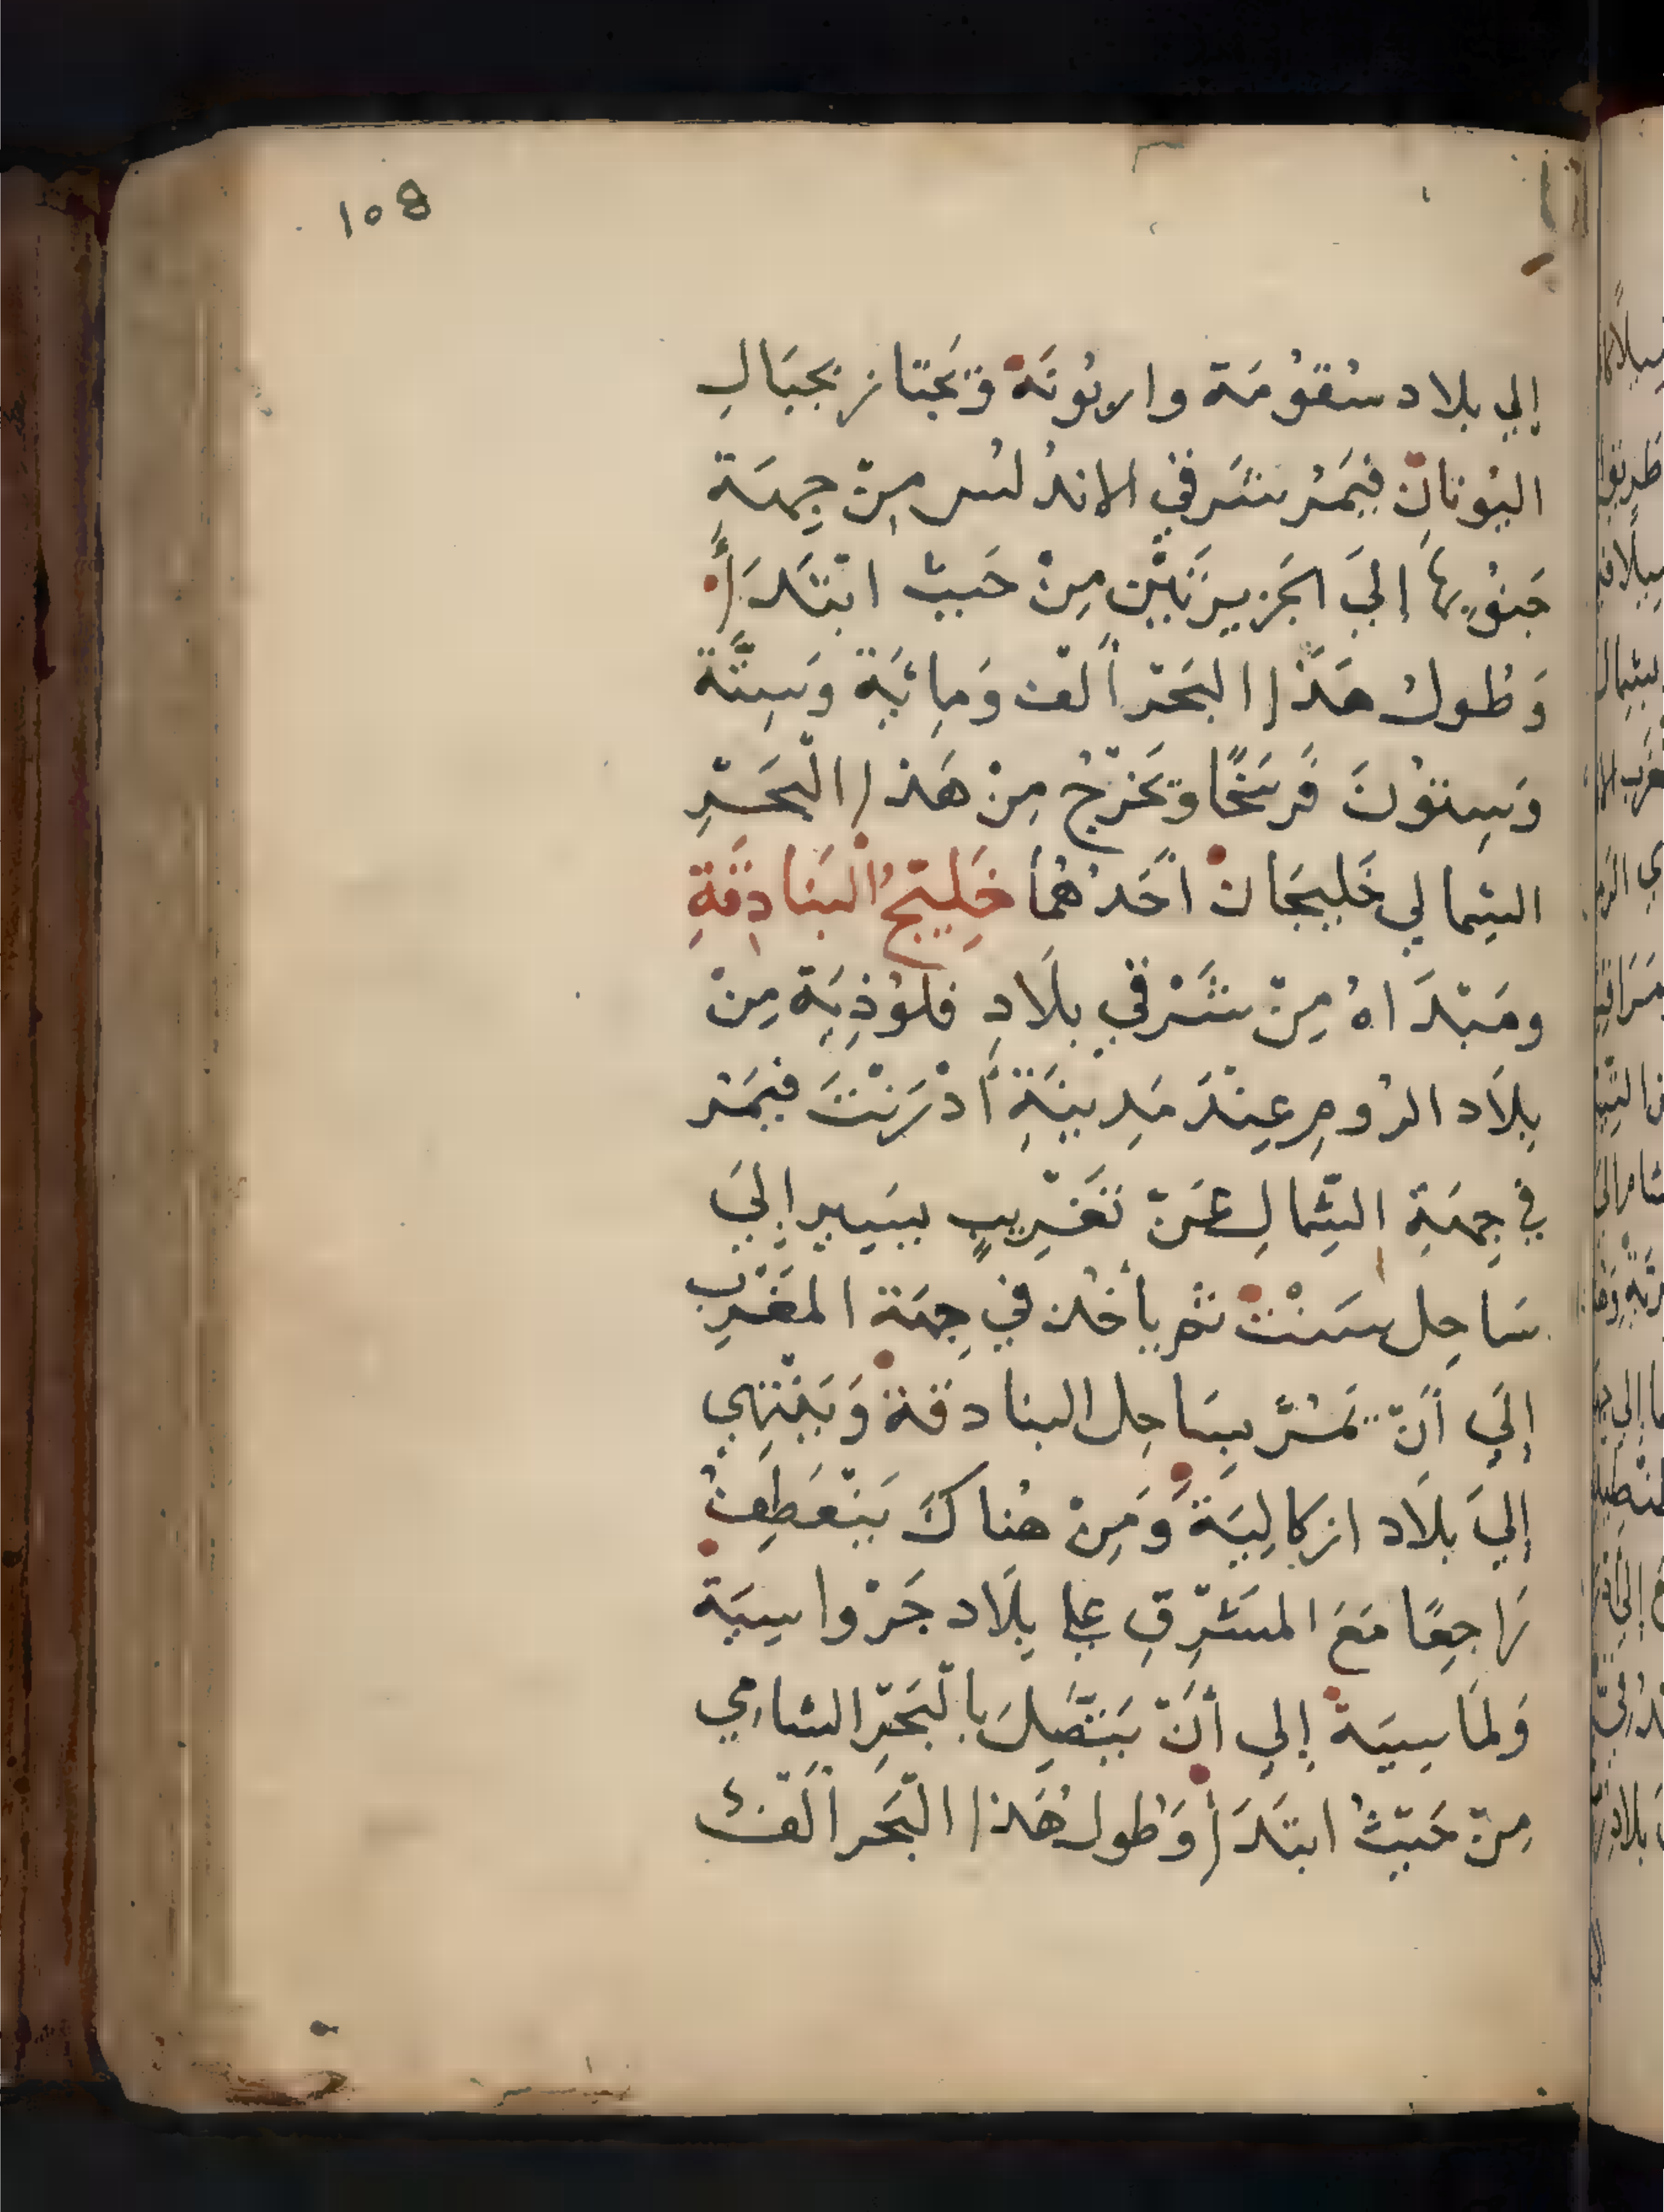 108
إلي بلاد سُقوُمَة واربُونَة وَيَجتَاز بجبَالِ
اليُونانّ فيَمُر بشَرقي الاندُلُس مِنّ جِهَةِ
جَنوُبِهَا إليَ الجَزيرَتَيّن مِنْ حَيثُ ابْتَدَأَ
وَطُولُ هَذَا البَحّر ألفّ وَمِائيَة وَسِتَّة
وَسِتوُنَ فَرسَخًا وَيَخرُجُ مِنْ هَذا الّبَحَّرِ
الشِمالي خَليجَانْ أحَدُهُما خَلِيّجُ الْبَنادِقَةِ
ومَبّدَاهُ مِنّ شَرْقي بلَادِ قلوُذِيَة مِنْ
بلَاد الرُومِ عِنْدَ مَدِينَةِ أَدْرَنْتَ فيَمُر
في جِهَةِ الشِّمالِ عَنّ تَغَرِيبٍ يسَيير إليَ
سَاحِل سَنْتْ ثم يأخُذ في جِهَة المَغْرِب
إلَي أنّ يَمُرَّ بسَاحِل البنادقة وَيَنْتَهي
إليَ بلَاد ازكالِيَة وَمِنْ هُناكَ يَنّعَطِفُ
رَاجِعًا مَعَ المشَرِّقِ علي بلَاد جَرْواسِيَة
وَلمَاسِيَة إلي أنَّ يَتَّصَِلَ بالّبَحّرِ الشامِي
مِنّ حَيّثُ ابتَدَأ وَطُول هَذا الّبَحر ألّفُ